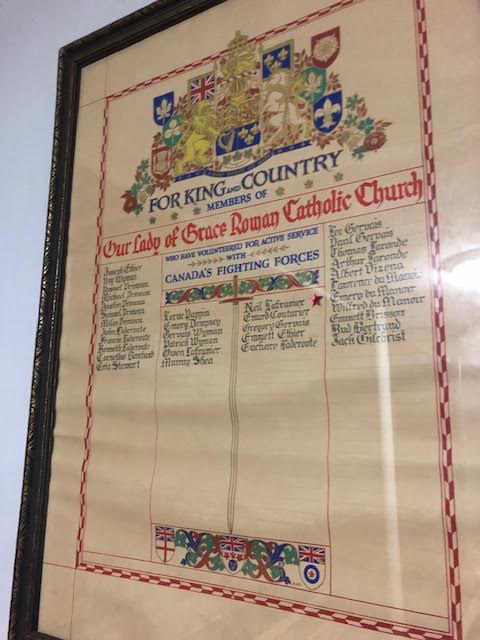 FOR KING AND COUNTRY
MEMBERS OF
Our Lady of Grace Roman Catholic Church
WHO HAVE VOLUNTEERED FOR ACTIVE SERVICE
WITH
CANADA'S FIGHTING FORCES
Joseph Ethier
Wyman
Drimeau
Michael Drimeau
Drimeau
Samuel Drimeau
Drimeau
John Laderoute
Francis Laderoute
Kenneth Laderoute
Cornelius
Eric Stewart
Lorne Pappin
Emery Dempsey
Gervais Wyman
Patrick Wyman
Owen Lafranier
Murray Shea
Neil Lafranier
Emard Couturier
Gregory Gervais
Emmett Ethier
Euchare Laderoute
Leo Gervais
Paul Gervais
Thomas Laronde
Arthur Laronde
Albert Vizena
Lawrence du Manoir
Emery du Manoir
Wilfred du Manoir
Emmett Brisson
Bud Bertrand
Jack Gilchrist